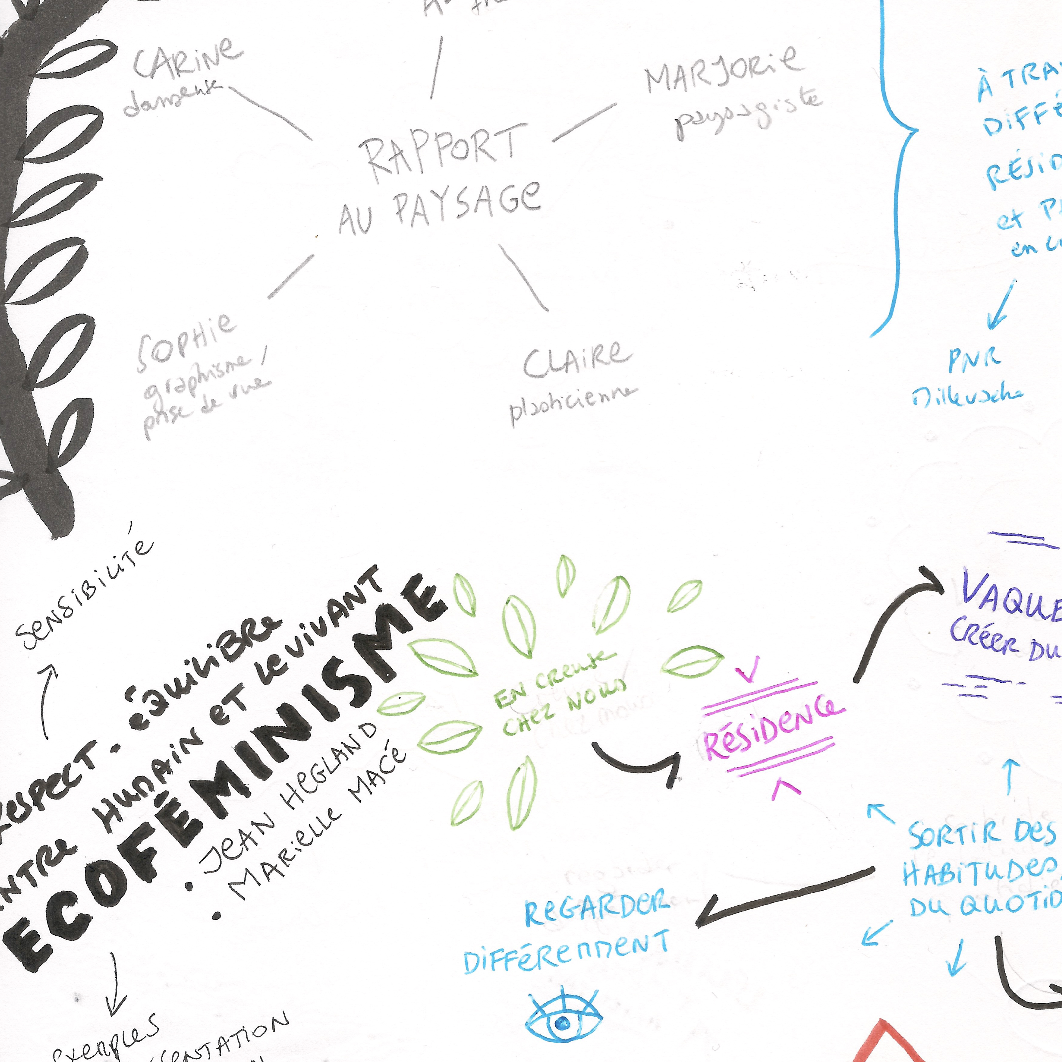 CARINE
danseuse
MARJORIE
paysagiste
RAPPORT
AU PAYSAGE
SOPHIE
graphisme /
prise de vue
CLAIRE
plasticienne
À TRA
DIFFÉ
RÉSID
et P
en c
PNR
Millevache
SENSIBILITÉ
RESPECT. ÉQUILIBRE
ENTRE HUMAIN ET LE VIVANT
ECOFÉMINISME
• JEAN HEGLAND
• MARIELLE MACÉ
exemples
SENTATION
EN CREUSE
CHEZ NORD
RÉSIDENCE
VAQUE
CRÉER DU
SORTIR DES
HABITUDES
DU QUOTID
REGARDER
DIFFÉREMMENT